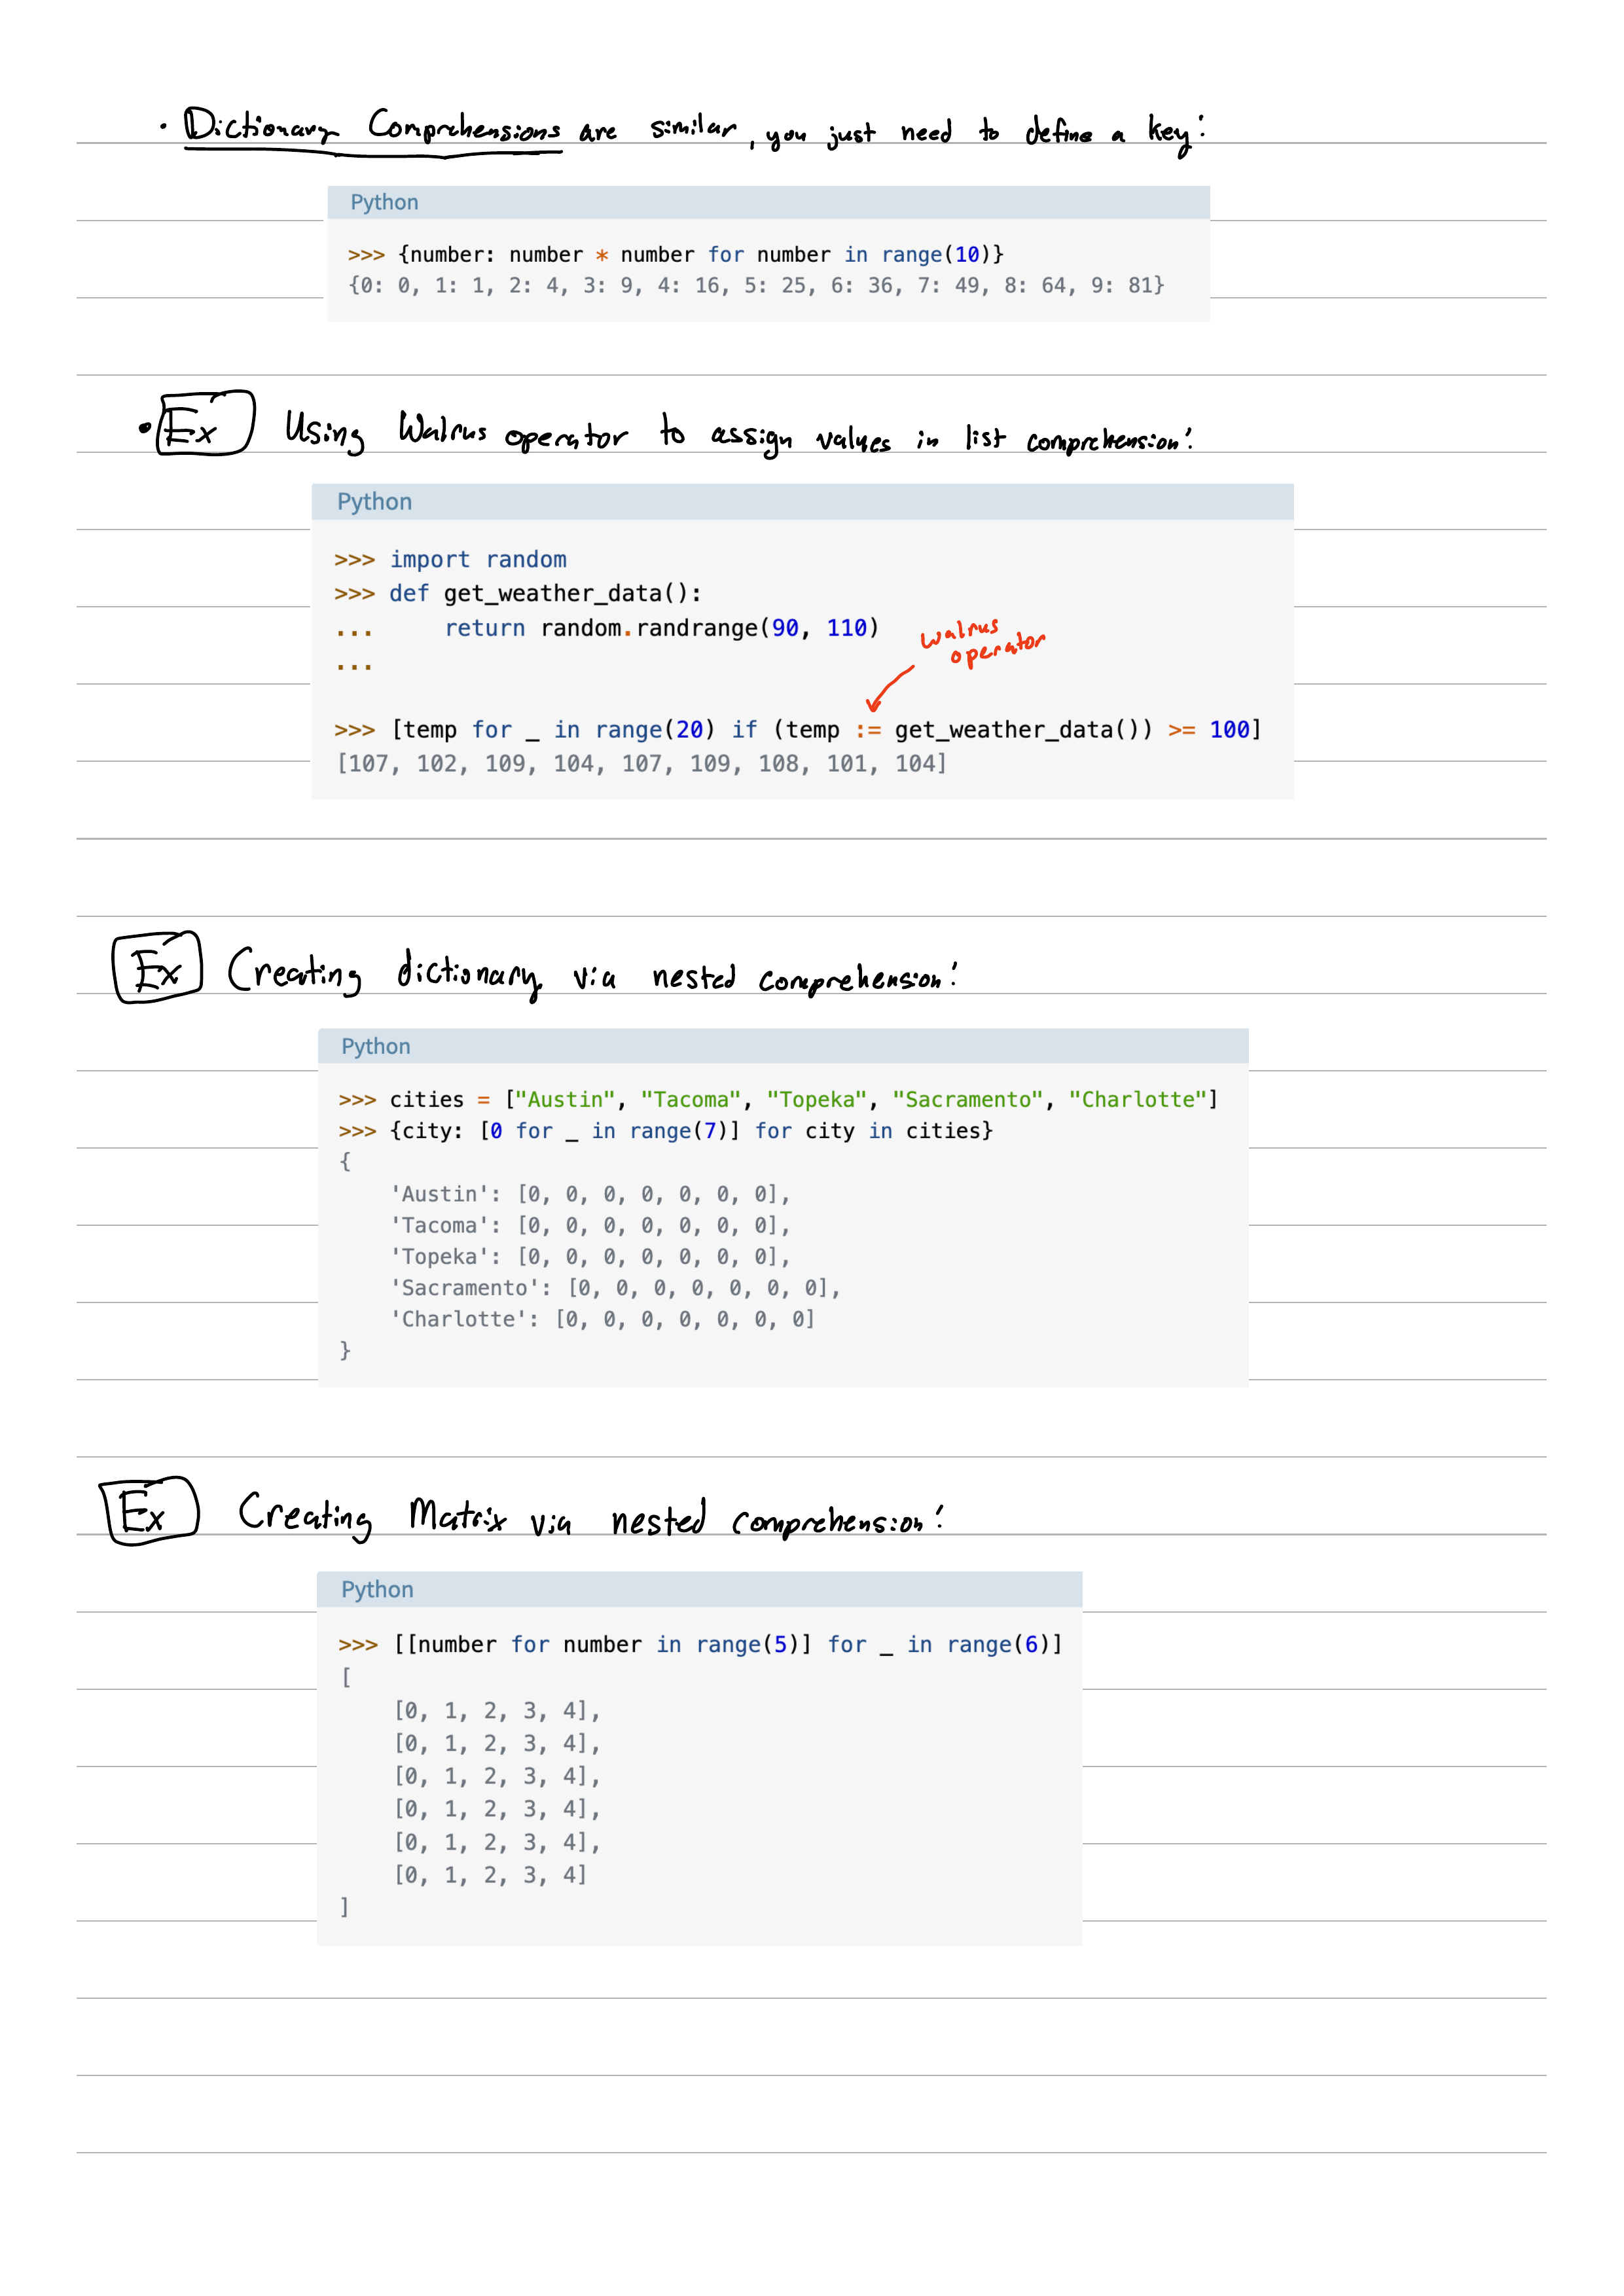 • Dictionary Comprehensions are similar, you just need to define a key:
Python
>>> {number: number * number for number in range(10)}
{0: 0, 1: 1, 2: 4, 3: 9, 4: 16, 5: 25, 6: 36, 7: 49, 8: 64, 9: 81}
• Ex Using Walrus operator to assign values in list comprehension:
Python
>>> import random
>>> def get_weather_data():
...     return random.randrange(90, 110)
...
walrus
operator
>>> [temp for _ in range(20) if (temp := get_weather_data()) >= 100]
[107, 102, 109, 104, 107, 109, 108, 101, 104]
Ex Creating dictionary via nested comprehension:
Python
>>> cities = ["Austin", "Tacoma", "Topeka", "Sacramento", "Charlotte"]
>>> {city: [0 for _ in range(7)] for city in cities}
{
    'Austin': [0, 0, 0, 0, 0, 0, 0],
    'Tacoma': [0, 0, 0, 0, 0, 0, 0],
    'Topeka': [0, 0, 0, 0, 0, 0, 0],
    'Sacramento': [0, 0, 0, 0, 0, 0, 0],
    'Charlotte': [0, 0, 0, 0, 0, 0, 0]
}
Ex Creating Matrix via nested comprehension:
Python
>>> [[number for number in range(5)] for _ in range(6)]
[
    [0, 1, 2, 3, 4],
    [0, 1, 2, 3, 4],
    [0, 1, 2, 3, 4],
    [0, 1, 2, 3, 4],
    [0, 1, 2, 3, 4],
    [0, 1, 2, 3, 4]
]